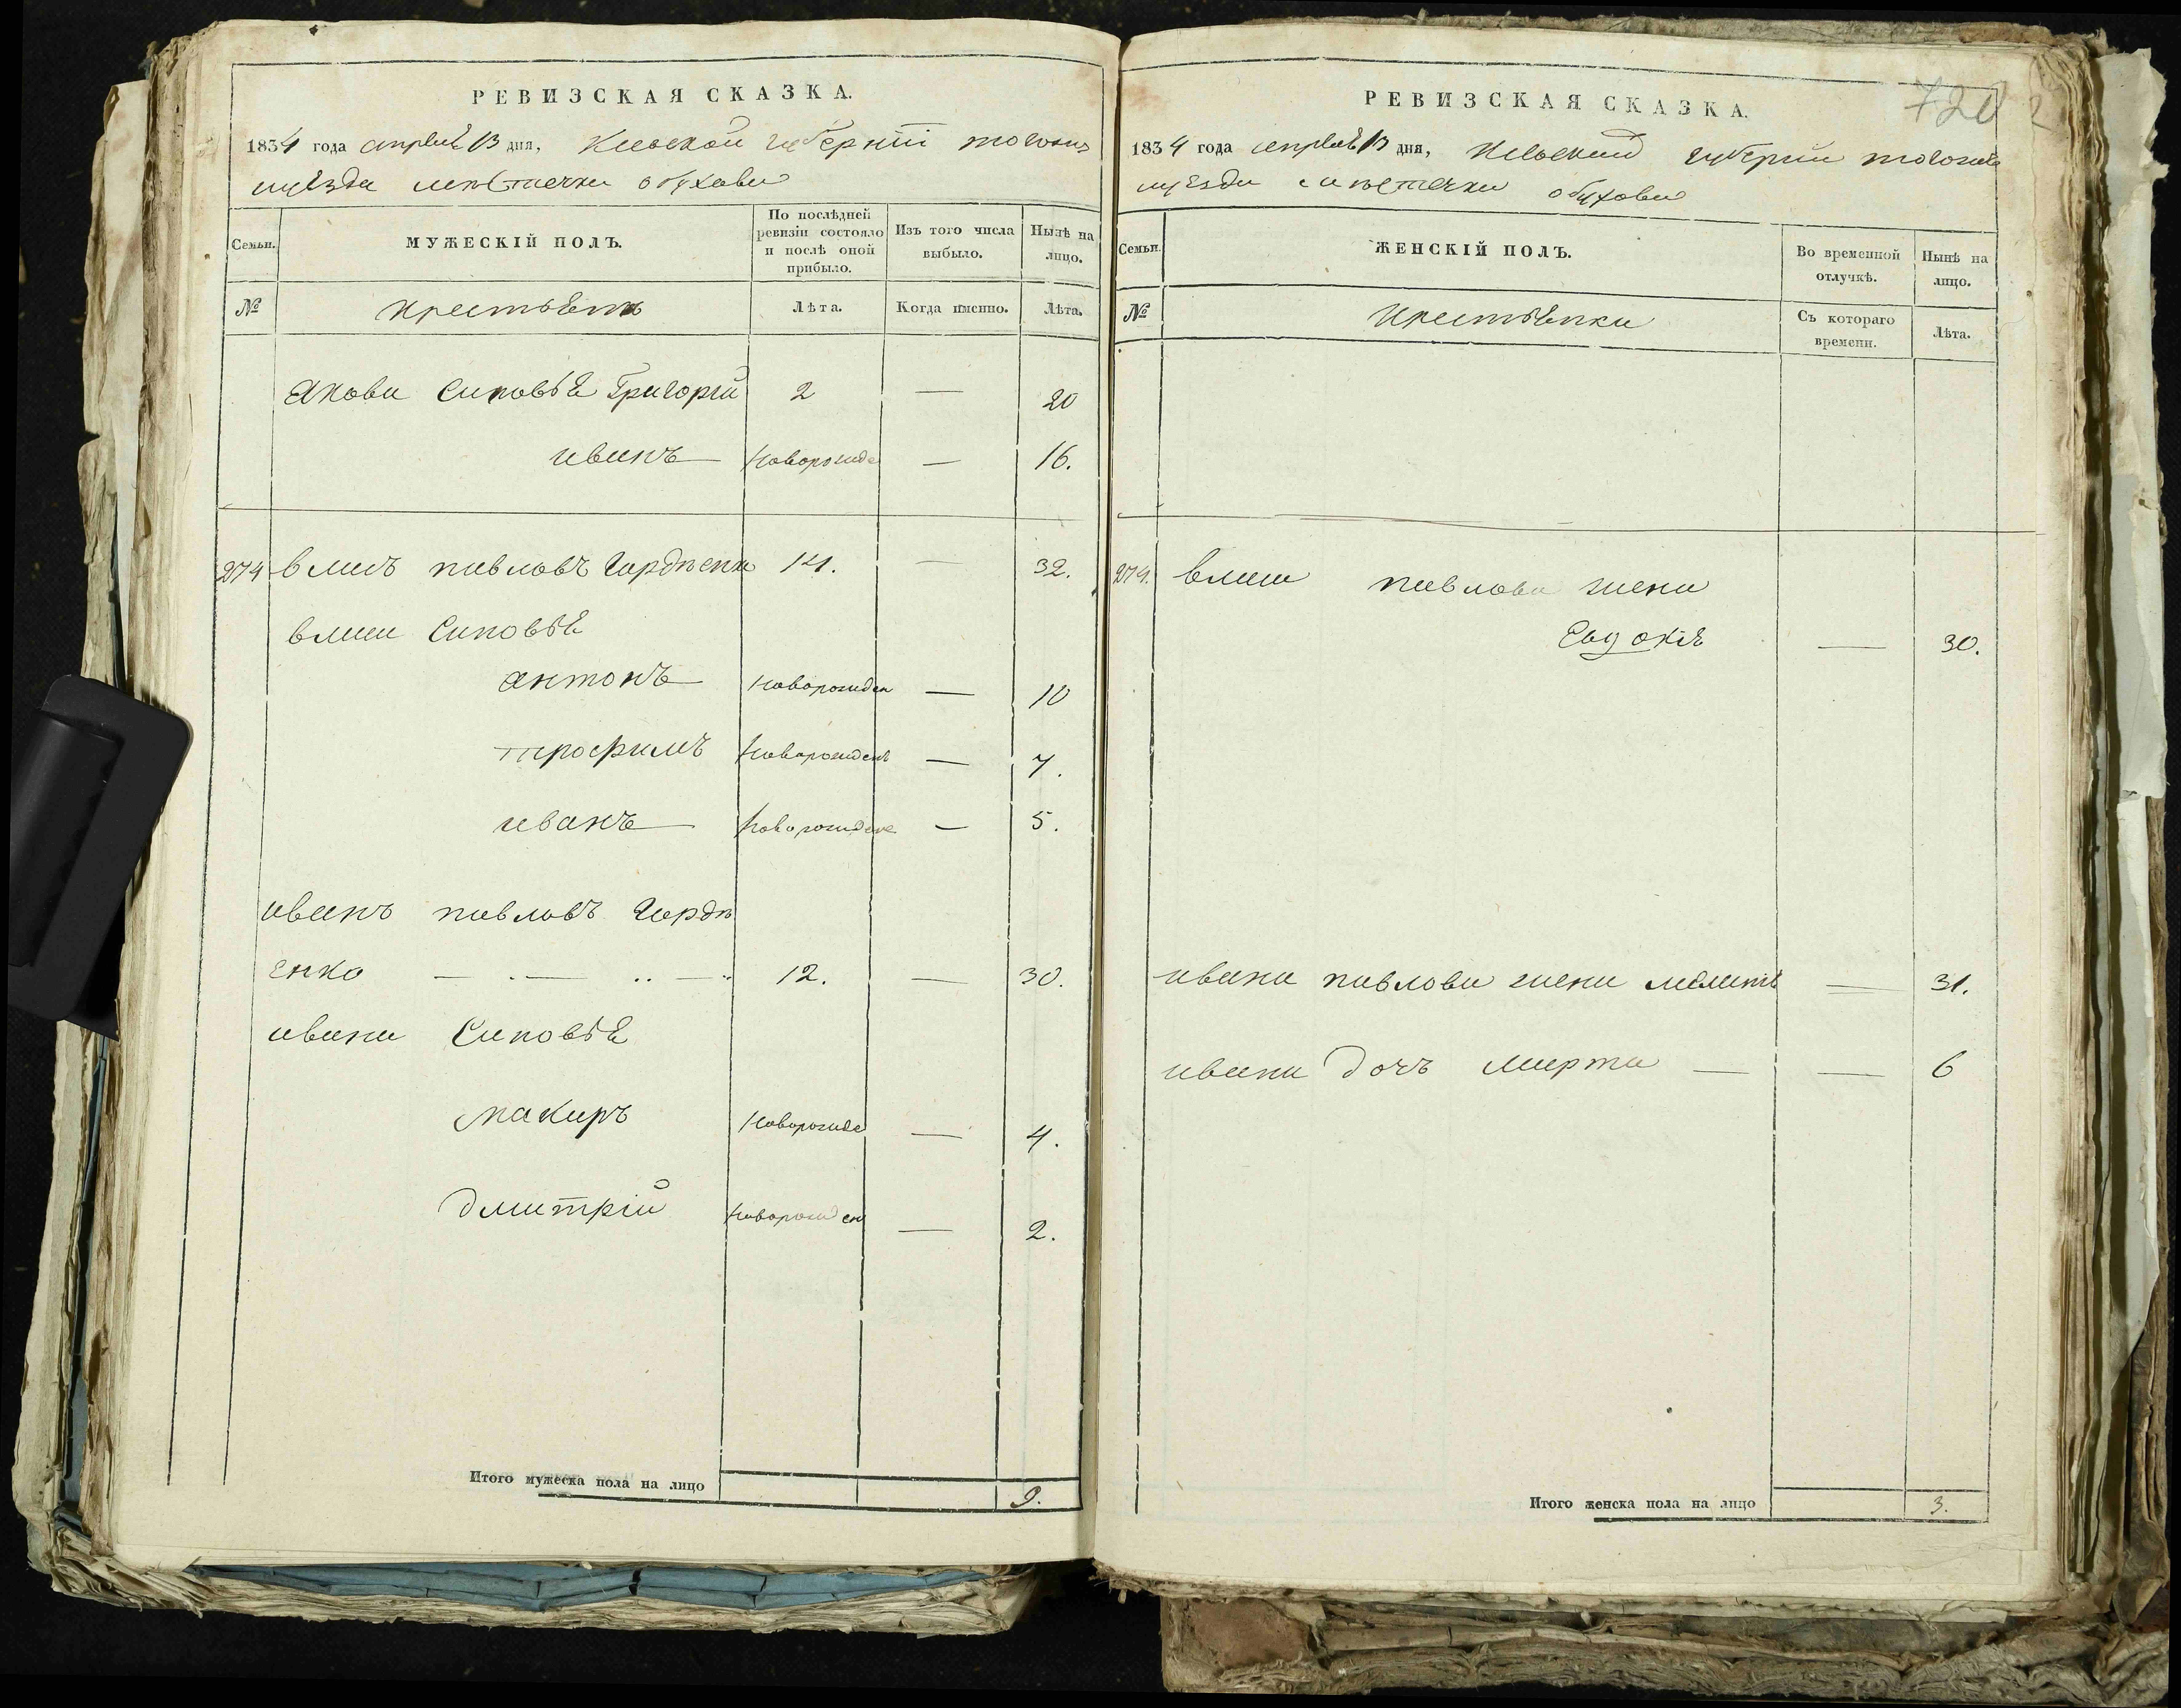 РЕВИЗСКАЯ СКАЗКА.
1834 года апреля 13 дня, Киевской губернии тогожъ
уезда местечка обухова
Семьи.
МУЖЕСКІЙ ПОЛЪ.
По послѣдней ревизіи состояло и послѣ оной прибыло.
Изъ того числа выбыло.
Нынѣ на лицо.
№
крестьяня
Лѣта.
Когда именно.
Лѣта.
якова Синовья Григорій 2 — 20
иванъ новорожде — 16.
274 власъ павловъ Гордѣенк 14. — 32.
власа Синовья
антонъ новорожден — 10
трофимъ новорожденъ — 7.
иванъ новорожден — 5.
иванъ павловъ Гордѣ
енко 12. — 30.
ивана Синовья
макаръ новорожде — 4.
дмитрій новорожден — 2.
Итого мужеска пола на лицо 9.
720
РЕВИЗСКАЯ СКАЗКА.
1834 года апреля 13 дня, Киевской губерніи тогожъ
уезда местечка обухова
Семьи.
ЖЕНСКІЙ ПОЛЪ.
Во временной отлучкѣ.
Нынѣ на лицо.
№
крестьянки
Съ котораго времени.
Лѣта.
274. власа павлова жена
Евдокія — 30.
ивана павлова жена — 31.
ивана дочъ марта — — 6
Итого женска пола на лицо 3.